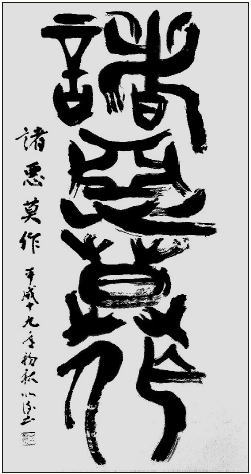 諸惡莫作
諸惡莫作 平成十九年初秋